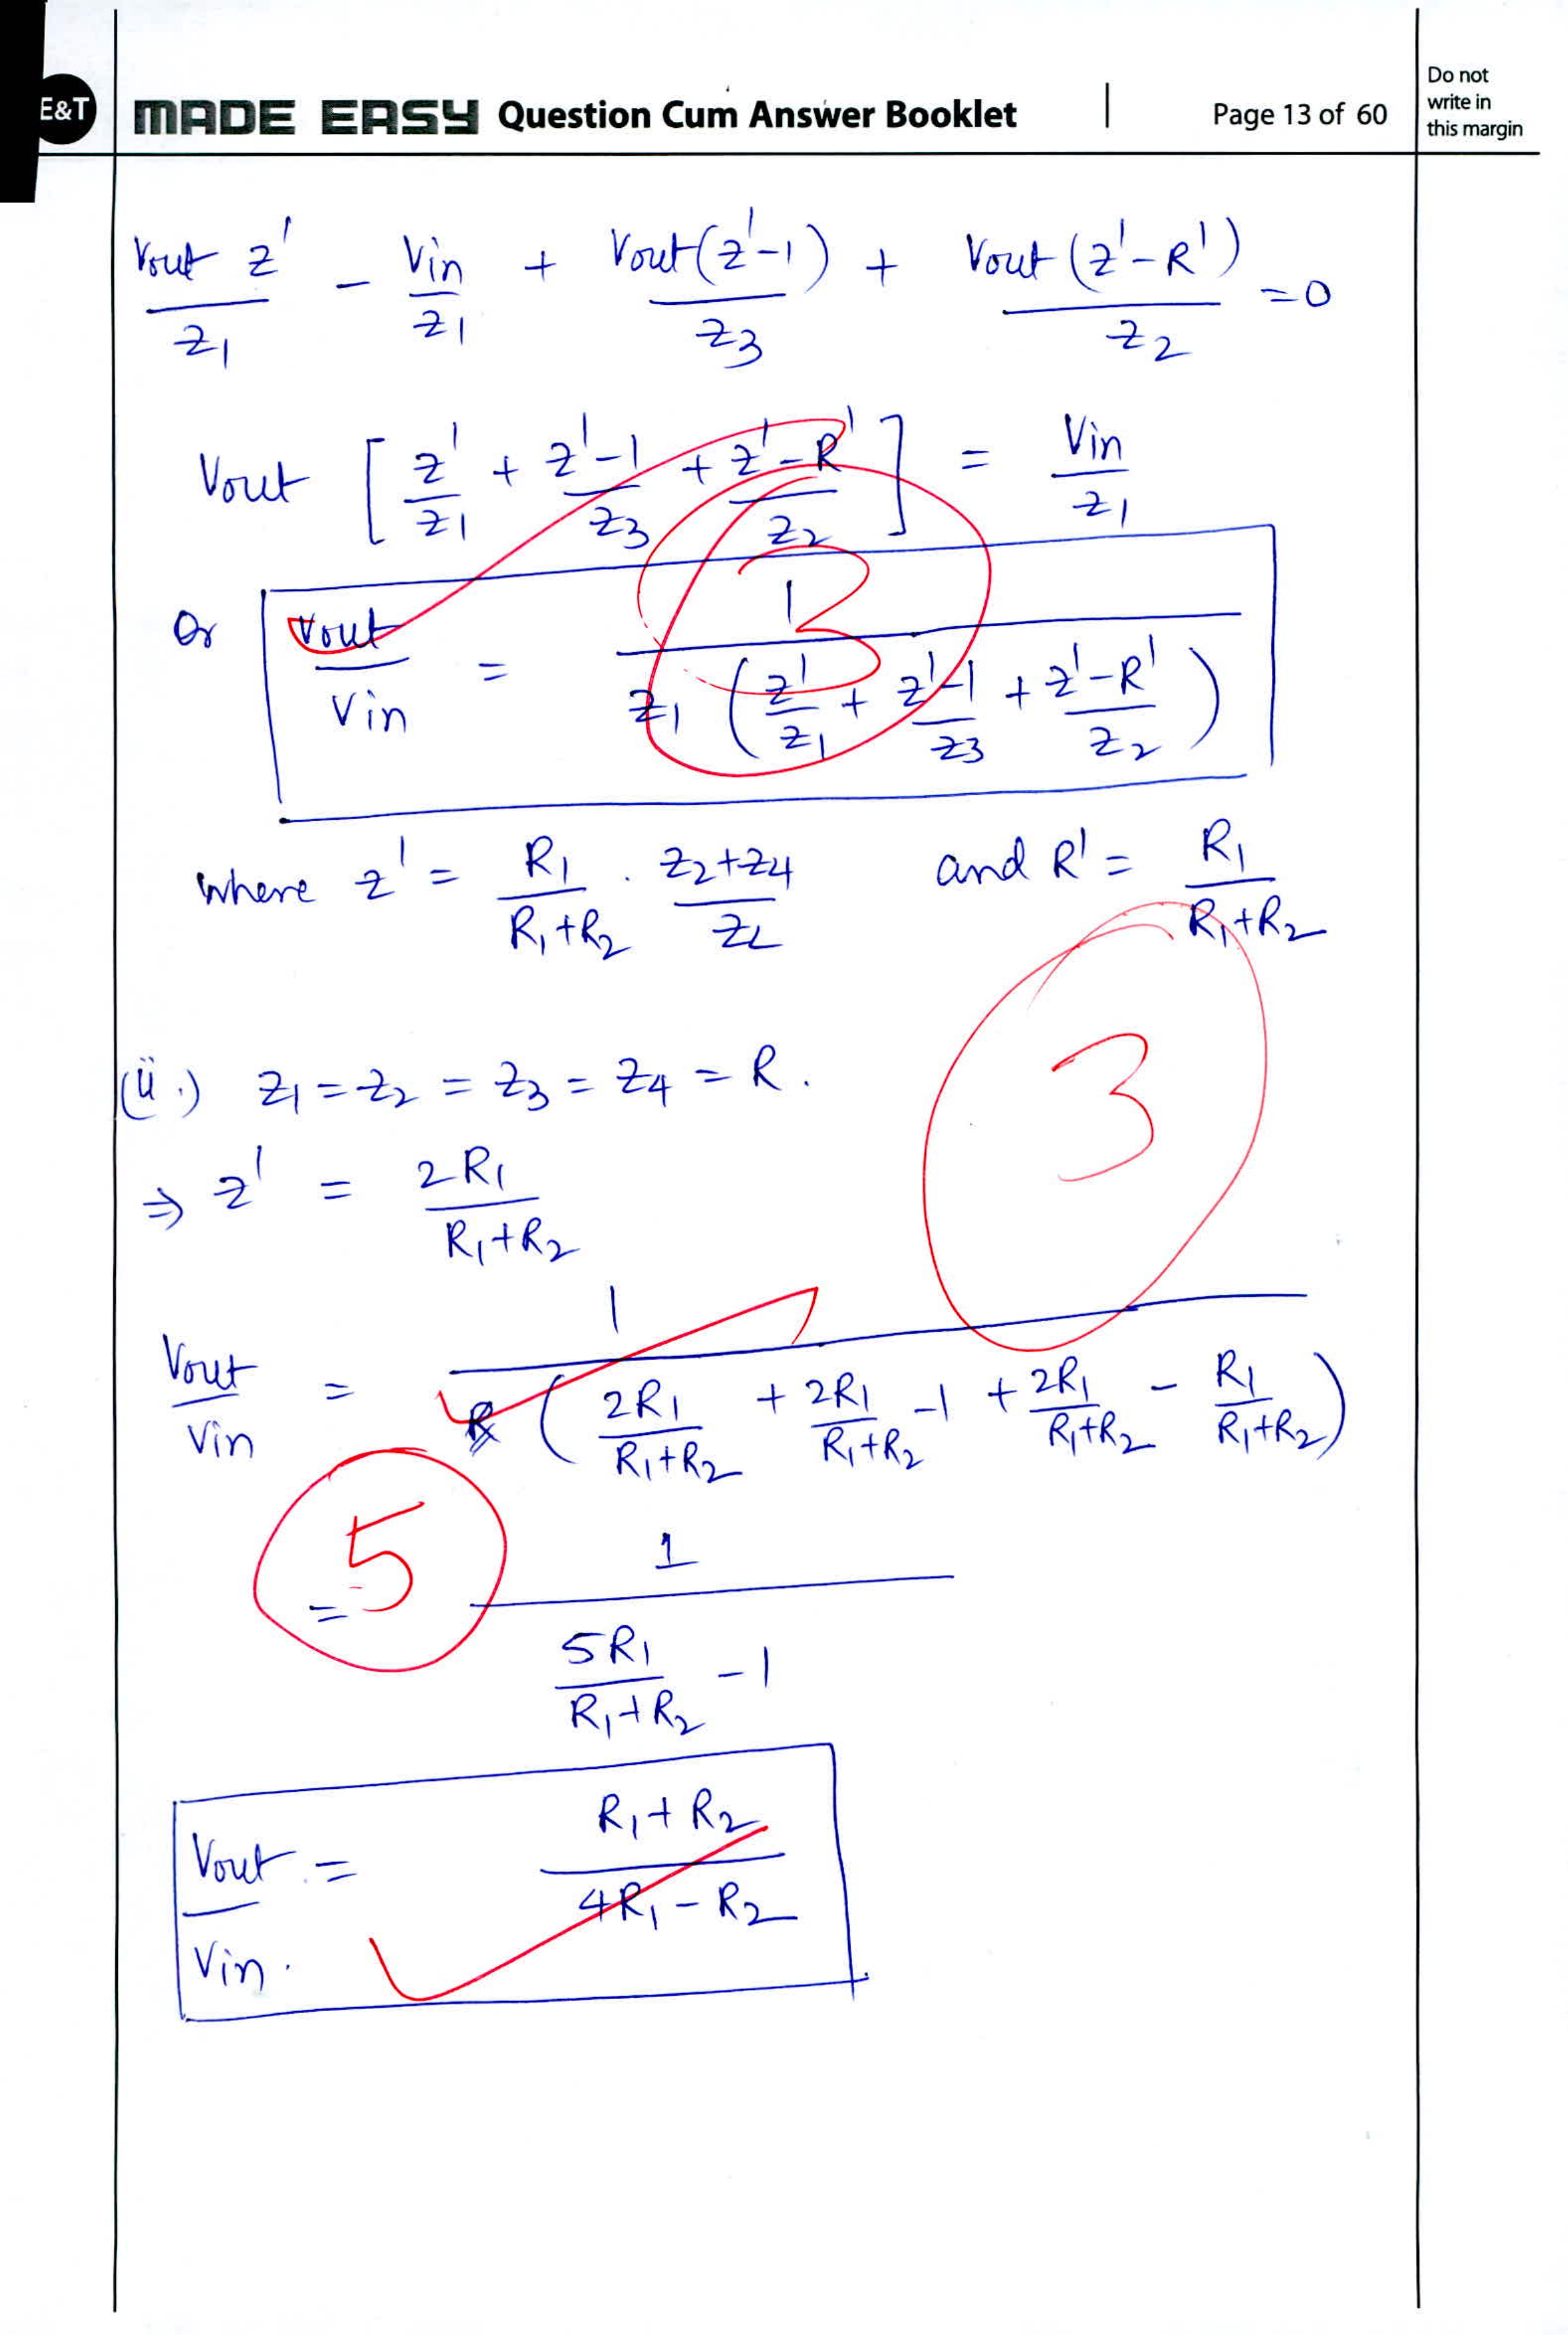 E&T MADE EASY Question Cum Answer Booklet | Page 13 of 60
Do not
write in
this margin
Vout z'/z1 - Vin/z1 + Vout(z'-1)/z3 + Vout(z'-R')/z2 = 0
Vout [z'/z1 + z'-1/z3 + z'-R'/z2] = Vin/z1
Or Vout/Vin = 1/z1(z'/z1 + z'-1/z3 + z'-R'/z2)
3
where z' = R1/R1+R2 . z2+z4/z2 and R' = R1/R1+R2
3
(ii.) z1 = z2 = z3 = z4 = R.
⇒ z' = 2R1/R1+R2
Vout/Vin = 1/(2R1/R1+R2 + 2R1/R1+R2 -1 + 2R1/R1+R2 - R1/R1+R2)
5
= 1/5R1/R1+R2 -1
Vout/Vin. = R1+R2/4R1-R2